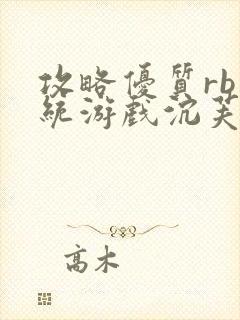 攻略優質rb
統游戲沉芙
高木